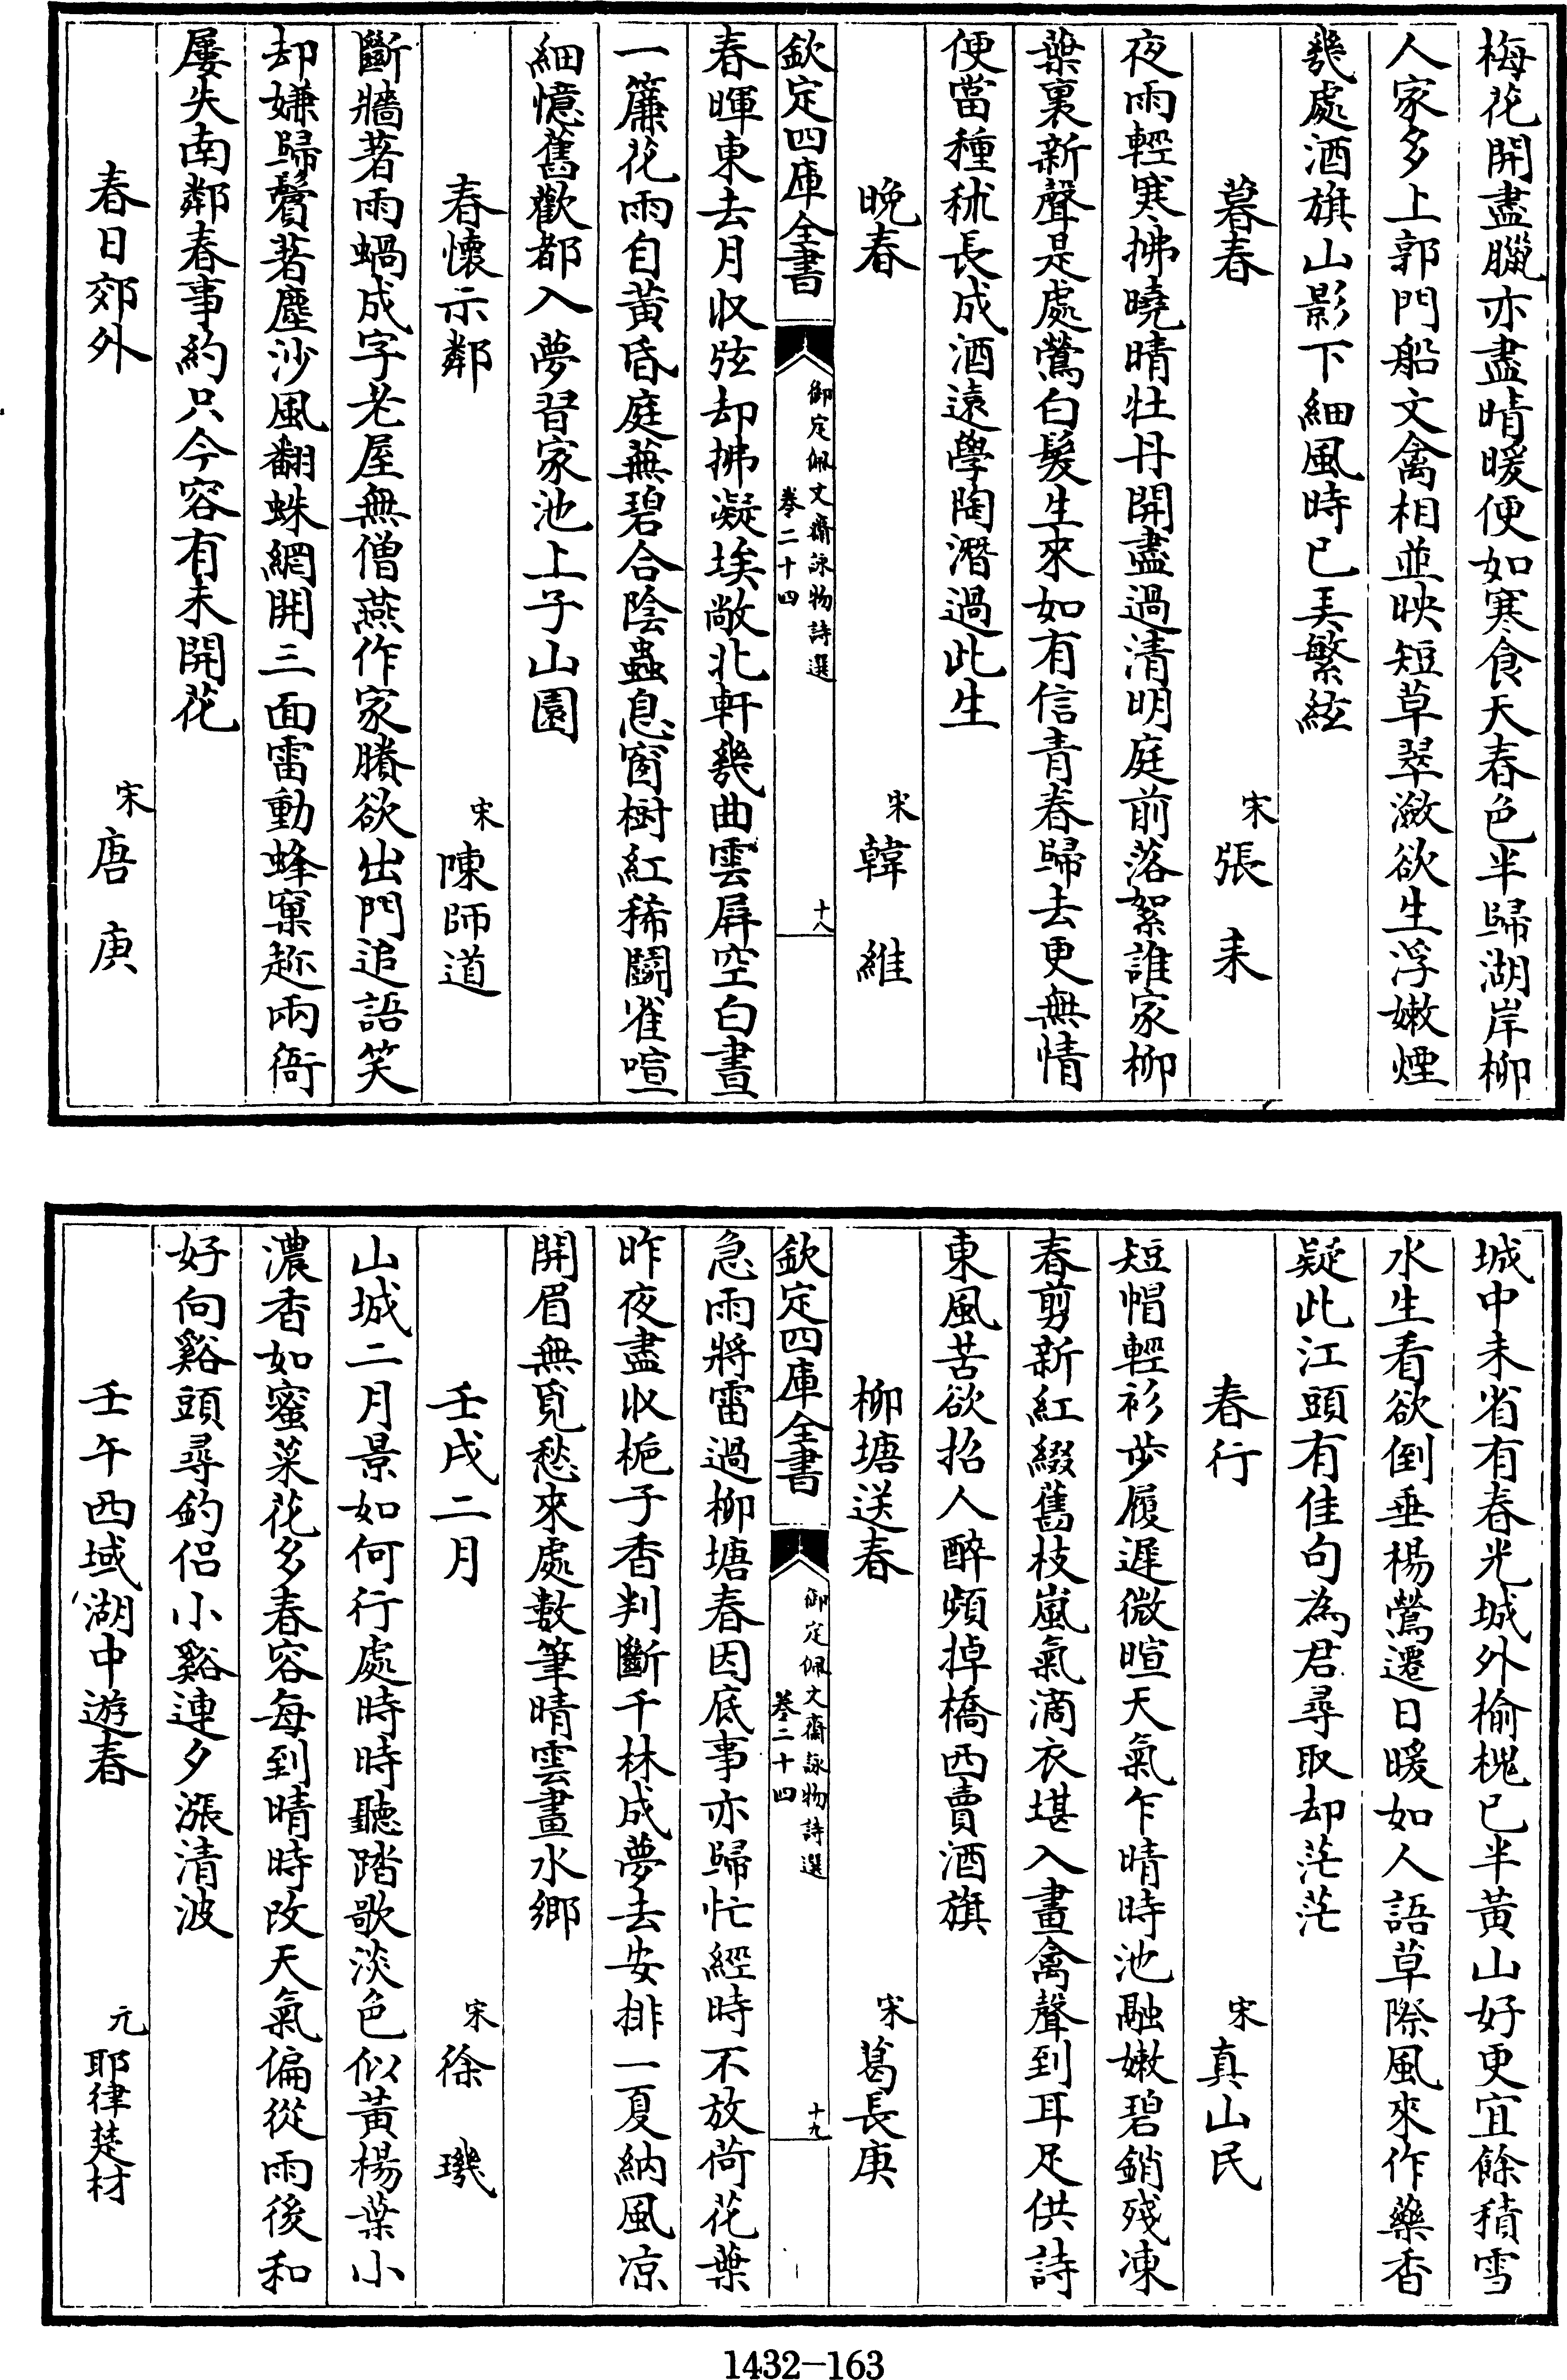 梅花開盡臘亦盡晴暖便如寒食天春色半歸湖岸柳
人家多上郭門船文禽相並映短草翠瀲欲生浮嫩煙
幾處酒旗山影下細風時已弄繁絃
暮春　宋張耒
夜雨輕寒拂曉晴牡丹開盡過清明庭前落絮誰家柳
葉裏新聲是處鶯白髮生來如有信青春歸去更無情
便當種秫長成酒遠學陶潛過此生
晚春　宋韓維
欽定四庫全書　御定佩文齋詠物詩選　卷二十四　十八
春暉東去月収弦却拂凝埃敞北軒幾曲雲屏空白晝
一簾花雨自黃昏庭蕪碧合陰蟲息窗樹紅稀鬭雀喧
細憶舊歡都入夢習家池上子山園
春懷示鄰　宋陳師道
斷牆著雨蝸成字老屋無僧燕作家賸欲出門追語笑
却嫌歸鬢著塵沙風翻蛛網開三面雷動蜂窠趂兩衙
屢失南鄰春事約只今容有未開花
春日郊外　宋唐庚
城中未省有春光城外榆槐已半黃山好更宜餘積雪
水生看欲倒垂楊鶯遷日暖如人語草際風來作藥香
疑此江頭有佳句為君尋取却茫茫
春行　宋真山民
短帽輕衫步履遲微暄天氣乍晴時池融嫩碧銷殘凍
春剪新紅綴舊枝嵐氣滴衣堪入畫禽聲到耳足供詩
東風苦欲招人醉頻掉橋西賣酒旗
柳塘送春　宋葛長庚
欽定四庫全書　御定佩文齋詠物詩選　卷二十四　十九
急雨將雷過柳塘春因底事亦歸忙經時不放荷花葉
昨夜盡収梔子香判斷千林成夢去安排一夏納風凉
開眉無覓愁來處數筆晴雲畫水鄉
壬戌二月　宋徐璣
山城二月景如何行處時時聽踏歌淡色似黃楊葉小
濃香如蜜菜花多春容每到晴時改天氣偏從雨後和
好向谿頭尋釣侶小谿連夕漲清波
壬午西域湖中遊春　元耶律楚材
1432-163